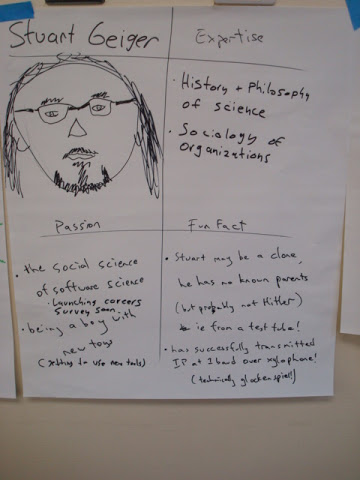 Stuart Geiger
Expertise
· History + Philosophy
of science
· Sociology of
Organizations
Passion
· the social science
of software science
· Launching careers
survey soon
· being a boy with
new toys
(getting to use new tools)
Fun Fact
· Stuart may be a clone,
he has no known parents
(but probably not Hitler)
ie from a test tube!
· has successfully transmitted
IP at 1 baud over xylophone!
(technically glockenspiel!)